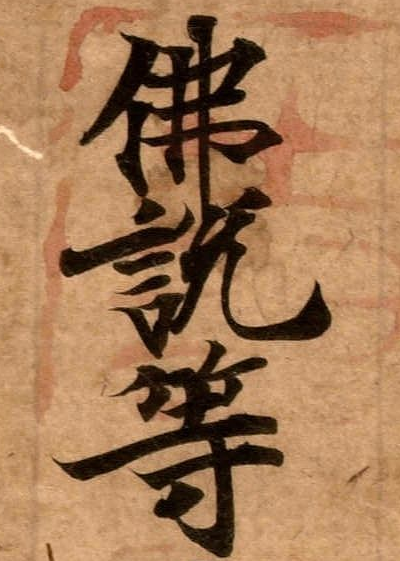 佛說等